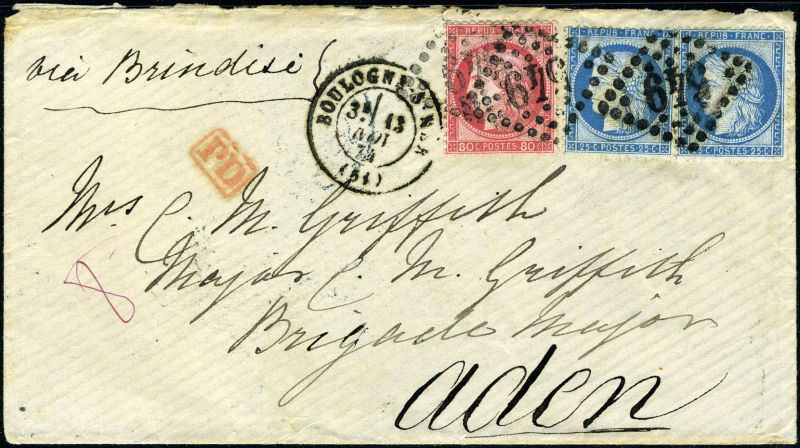 via Brindisi
BOULOGNE-S-MER
3E 13
AOUT
74
(61)
PD
REPUB FRANC
80 C POSTES 80 C
REPUB FRANC
25 C POSTES 25 C
REPUB FRANC
25 C POSTES 25 C
549
549
Mrs C. M. Griffith
Major C. M. Griffith
Brigade Major
Aden
8